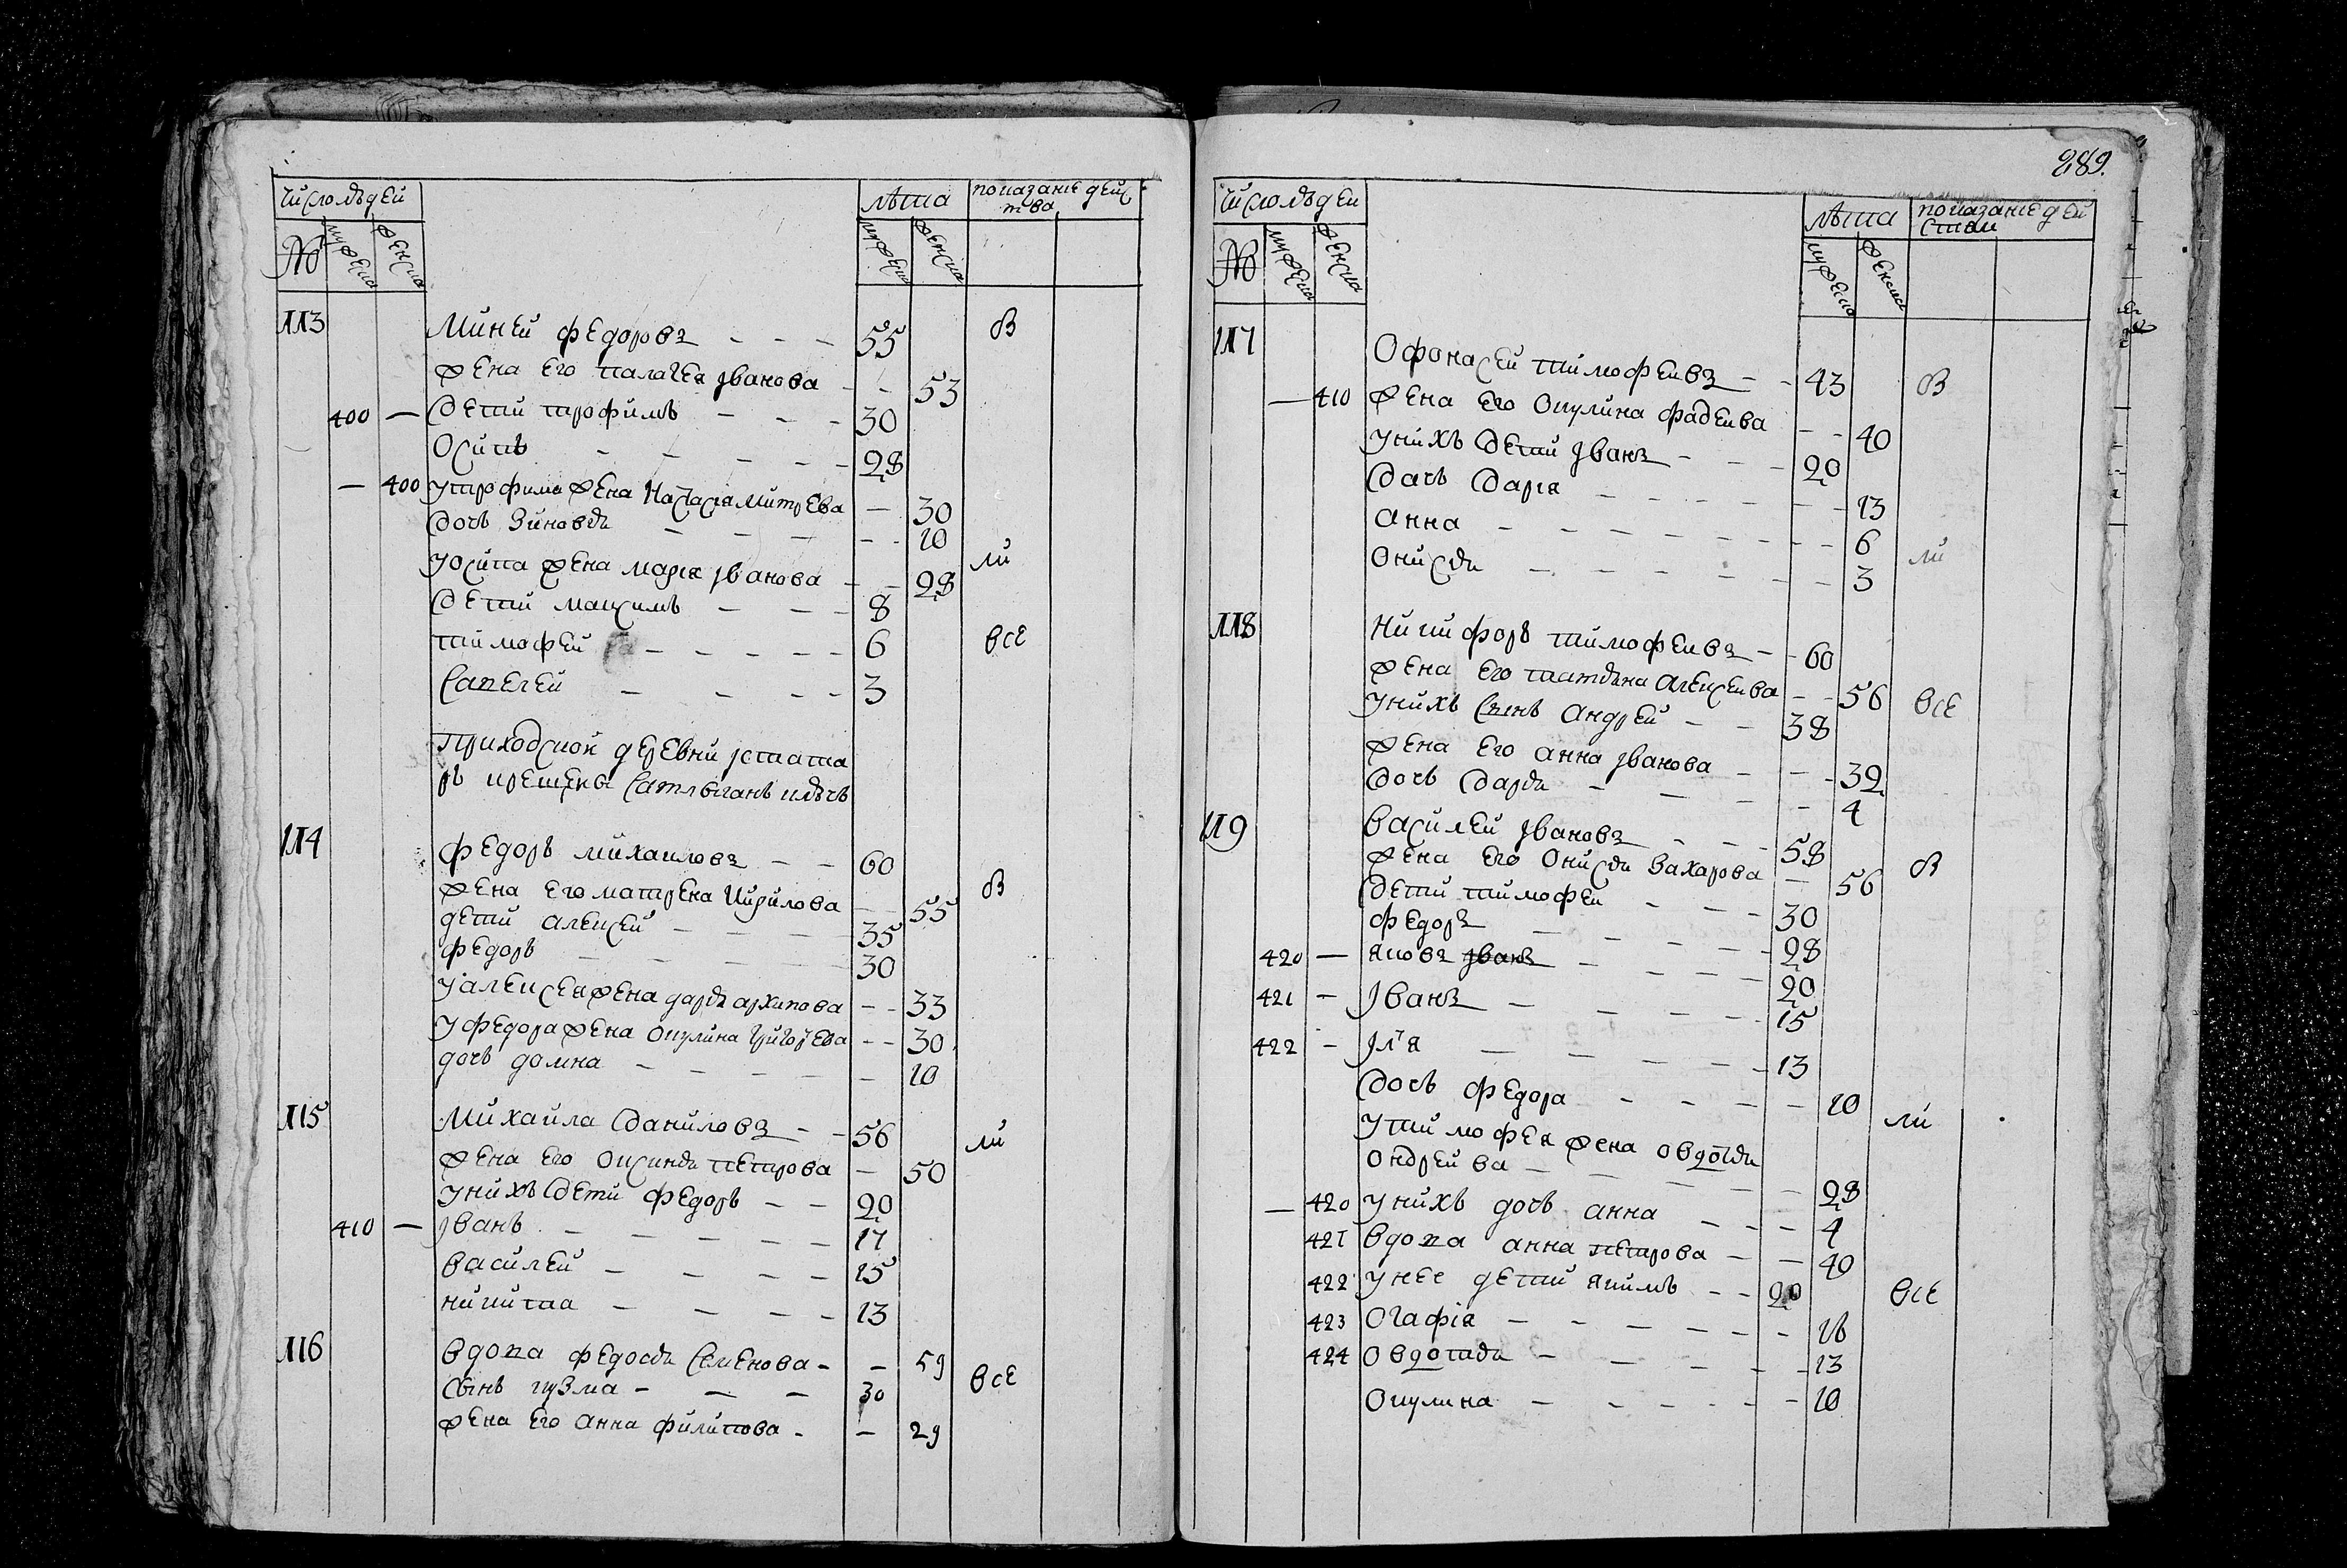 число людей
лѣта
показание дейс
тва
№
мужеска
женска
мужеска
женска
113 Миней федоровъ - - - 55 в
жена его палагея ивaнова - - 53
400 — дети трофимъ - - - 30
Осипъ - - - - - 28
— 400 у трофима жена настасия митрева - 30
дочь зиновья - - - - - 10
у осипа жена марья ивaнова - - 28 ли
дети максимъ - - - 8
тимофей - - - - - 6 все
савелей - - - - 3
приходской деревни
крещены
114 федоръ михаиловъ - - 60 в
жена его матрена кирилова - - 55
дети алексей - - - - 35
федоръ - - - - 30
у алексея жена дарья архипова - - 33
у федора жена окулина григорева - - 30
дочь домна - - - - - - 10
115 Михайла даниловъ - - 56 ли
жена его оксинья петрова - 50
у нихъ дети федоръ - - 20
410 — иванъ - - - - - - 17
василей - - - - 15
никита - - - - 13
116 вдова федосья семенова - - 59 все
сынъ кузма - - - 30
жена его анна филипова - - 29
289.
число людей
лѣта
показание дей
ствии
№
мужеска
женска
мужеско
женска
117 Офонасей тимофеивъ - - 43 в
— 410 жена его окулина фадеива - - 40
у нихъ дети иванъ - - - 20
дочь дарья - - - - - - 13
анна - - - - - - - - 6
онисья - - - - - - - 3 ли
118 никифоръ тимофеивъ - - 60
жена его татьяна алексеива - - 56 все
у нихъ сынъ андрей - - 38
жена его анна иванова - - - 32
дочь дарья - - - - - 4
119 василей ивановъ - - - 58
жена его онисья захарова - 56 в
дети тимофеи - - - 30
федоръ - - - - - 28
420 — яковъ иванъ - - - - 20
421 - иванъ - - - - 15
422 - илья - - - - - 13
дочь федора - - - - - 10 ли
у тимофея жена овдотья
ондреива - - - - - - 28
— 420 у нихъ дочь анна - - - 4
421 вдова анна петрова - - 40
422 у нее дети якимъ - - 20 все
423 огафия - - - - - - 16
424 овдотья - - - - - 13
окулина - - - - - - 10